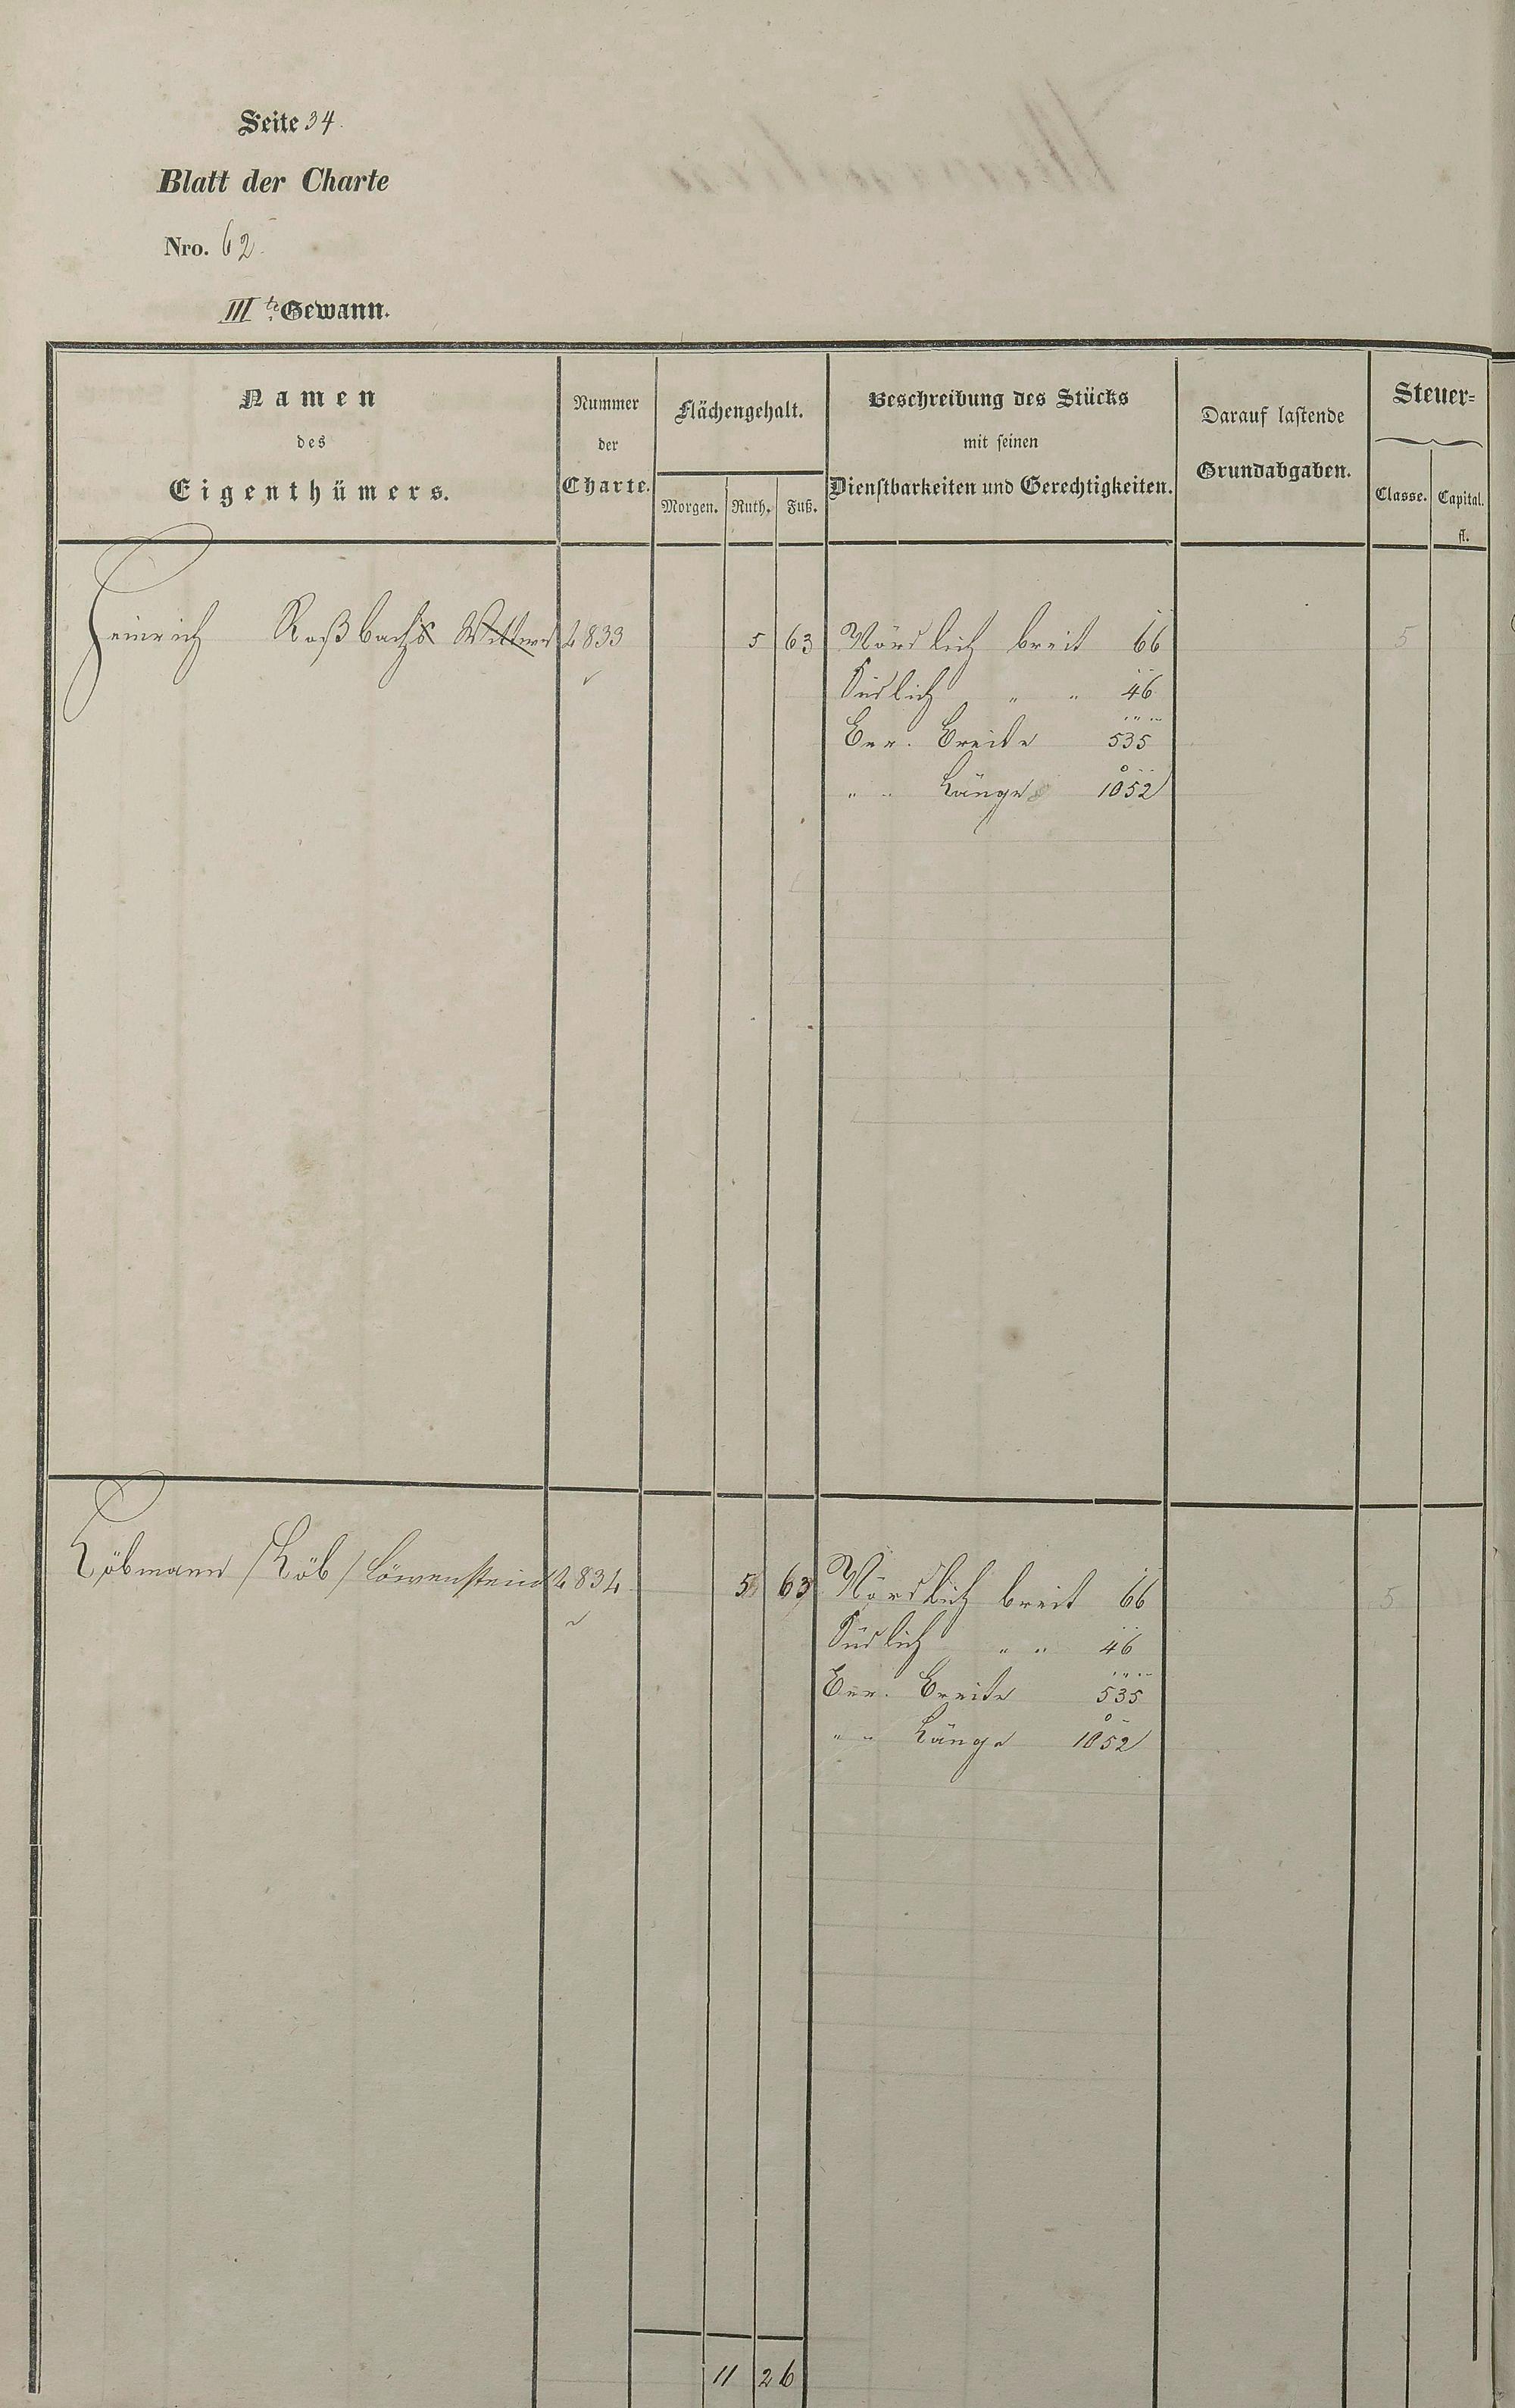 Seite 34.
Blatt der Charte
Nro. 62.
III te Gewann.
Namen des Eigenthümers.
Nummer der Charte.
Flächengehalt.
Morgen. Ruth. Fuß.
Beschreibung des Stücks mit seinen Dienstbarkeiten und Gerechtigkeiten.
Darauf lastende Grundabgaben.
Steuer=
Classe. Capital. fl.
Heinrich Roßbach's Wittwe 4833 5 63 Nördlich breit 66 5
Südlich " " 46
Ber. Breite 535
" " Länge 1052
Löbmann /Löb/ Löwenstein 4834 5 63 Nördlich breit 66 5
Südlich " " 46
Ber. Breite 535
" " Länge 1052
11 26